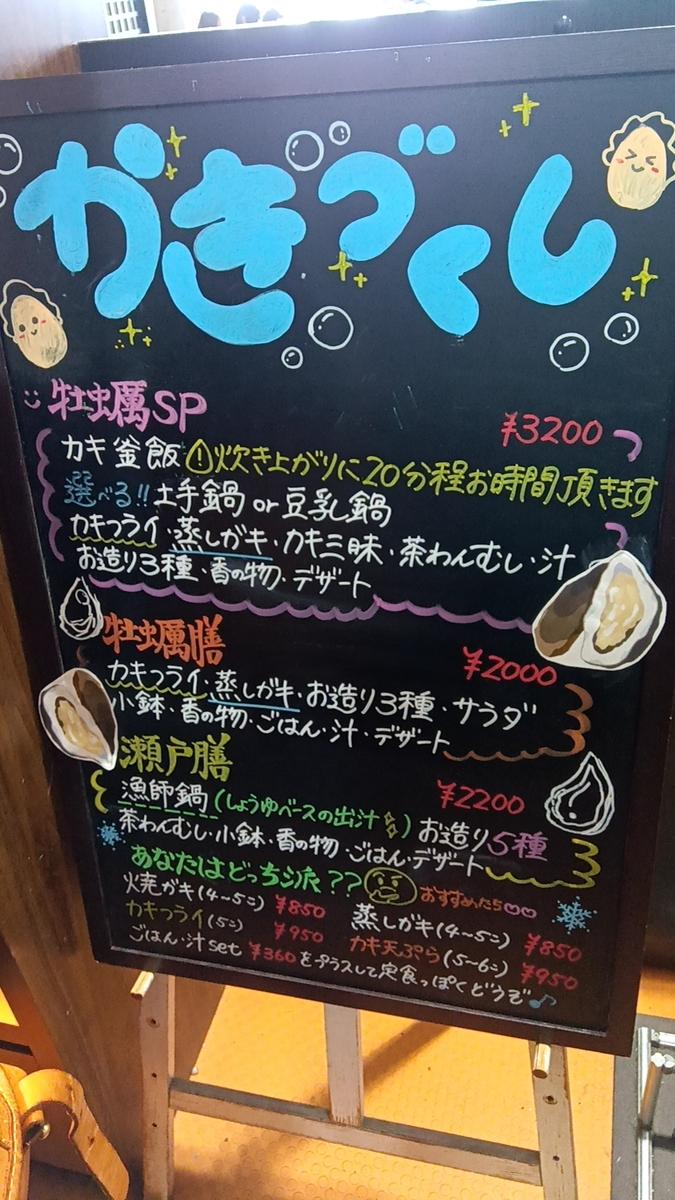 かきづくし
牡蠣SP ¥3200
カキ釜飯 ! 炊き上がりに20分程お時間頂きます
選べる!! 土手鍋 or 豆乳鍋
カキフライ・蒸しガキ・カキ三昧・茶わんむし・汁
お造り3種・香の物・デザート
牡蠣膳 ¥2000
カキフライ・蒸しガキ・お造り3種・サラダ
小鉢・香の物・ごはん・汁・デザート
瀬戸膳 ¥2200
漁師鍋(しょうゆベースの出汁) お造り5種
茶わんむし・小鉢・香の物・ごはん・デザート
あなたはどっち派?? おすすめたち
焼ガキ(4~5コ) ¥850 蒸しガキ(4~5コ) ¥850
カキフライ(5コ) ¥950 カキ天ぷら(5~6コ) ¥950
ごはん・汁set ¥360をプラスして定食っぽくどうぞ♪